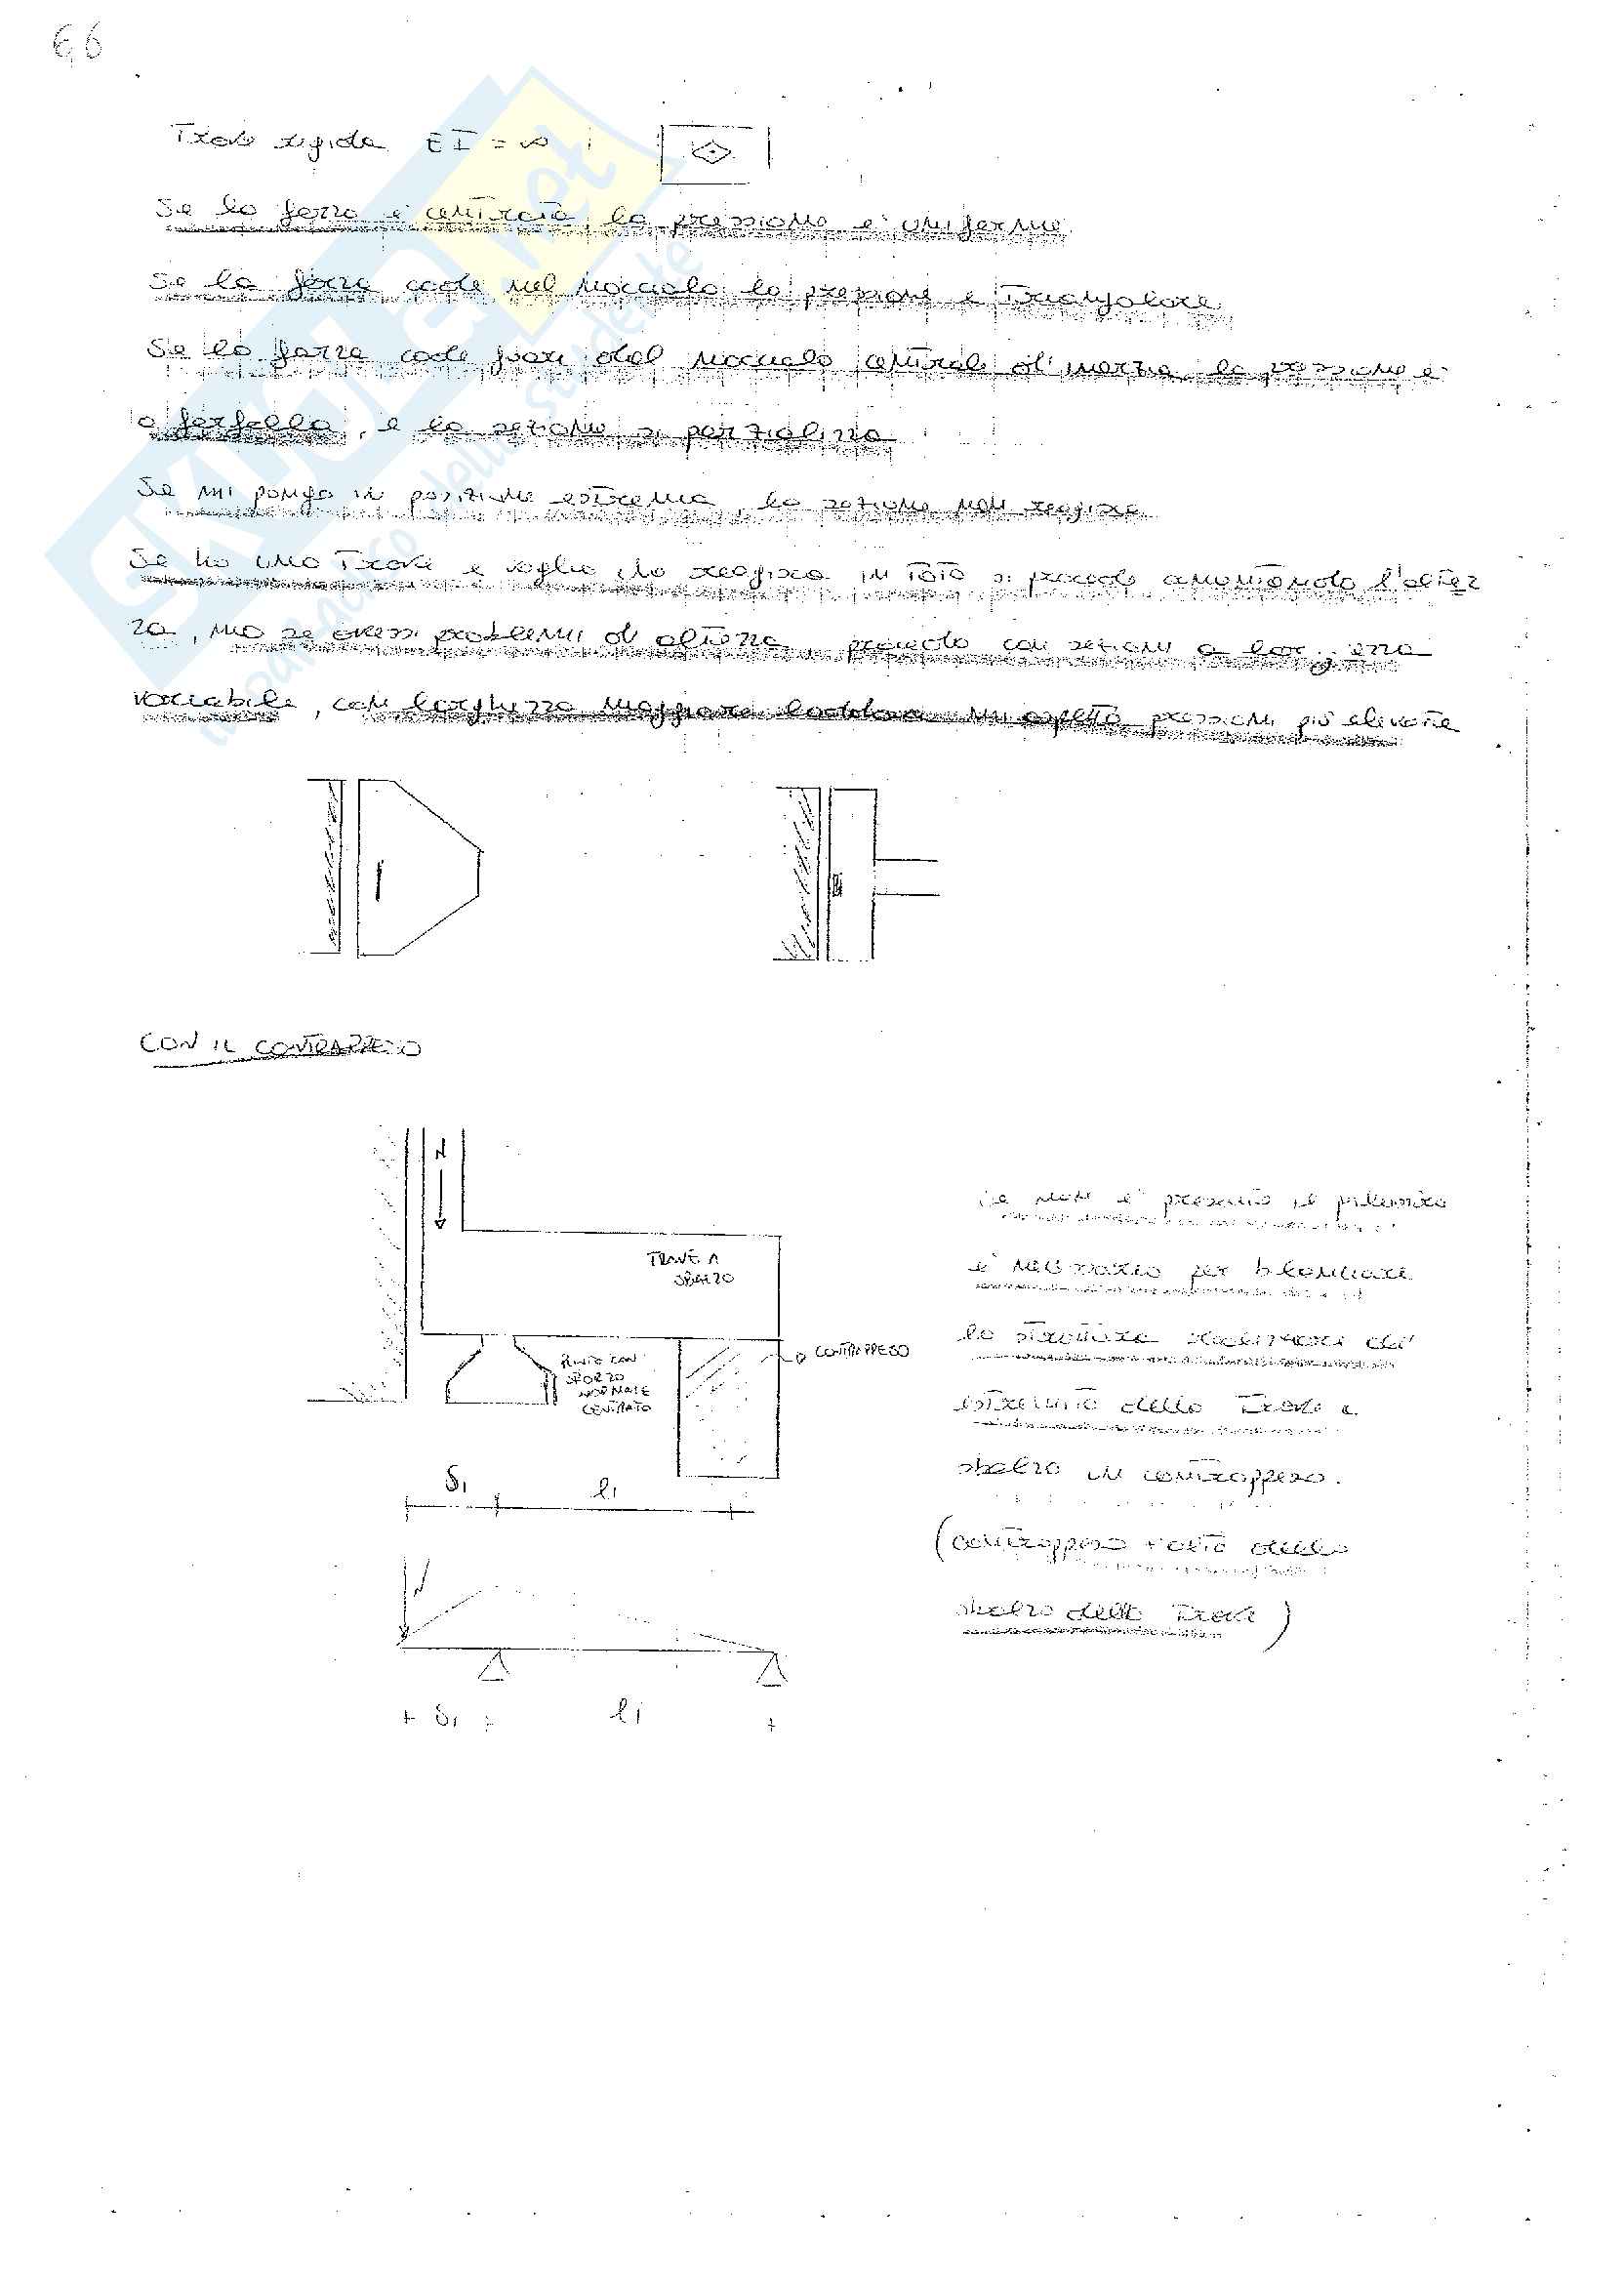 66
Trave rigida EI = ∞ :
Se la forza è centrata, la pressione è uniforme.
Se la forza cade nel nocciolo la pressione è triangolare
Se la forza cade fuori dal nocciolo centrale d'inerzia la pressione è
a farfalla, e la sezione si parzializza
Se mi pongo in posizione estrema, la sezione non reagisce
Se ho una trave e voglio che reagisca in toto si procede aumentando l'altez
za, ma se avessi problemi di altezza, procedo con sezioni a larghezza
variabile, con larghezza maggiore laddove mi aspetto pressioni più elevate
CON IL CONTRAPPESO
N
TRAVE A
SBALZO
CONTRAPPESO
PLINTO CON
SFORZO
NORMALE
CENTRATO
δ1
l1
Se non è presente il pilastro
è necessario per bilanciare
la struttura realizzare all'
estremità della trave a
sbalzo un contrappeso.
(contrappeso + alto dello
sbalzo della trave)
N
δ1
l1
SKUOLA.net
il paradiso dello studente